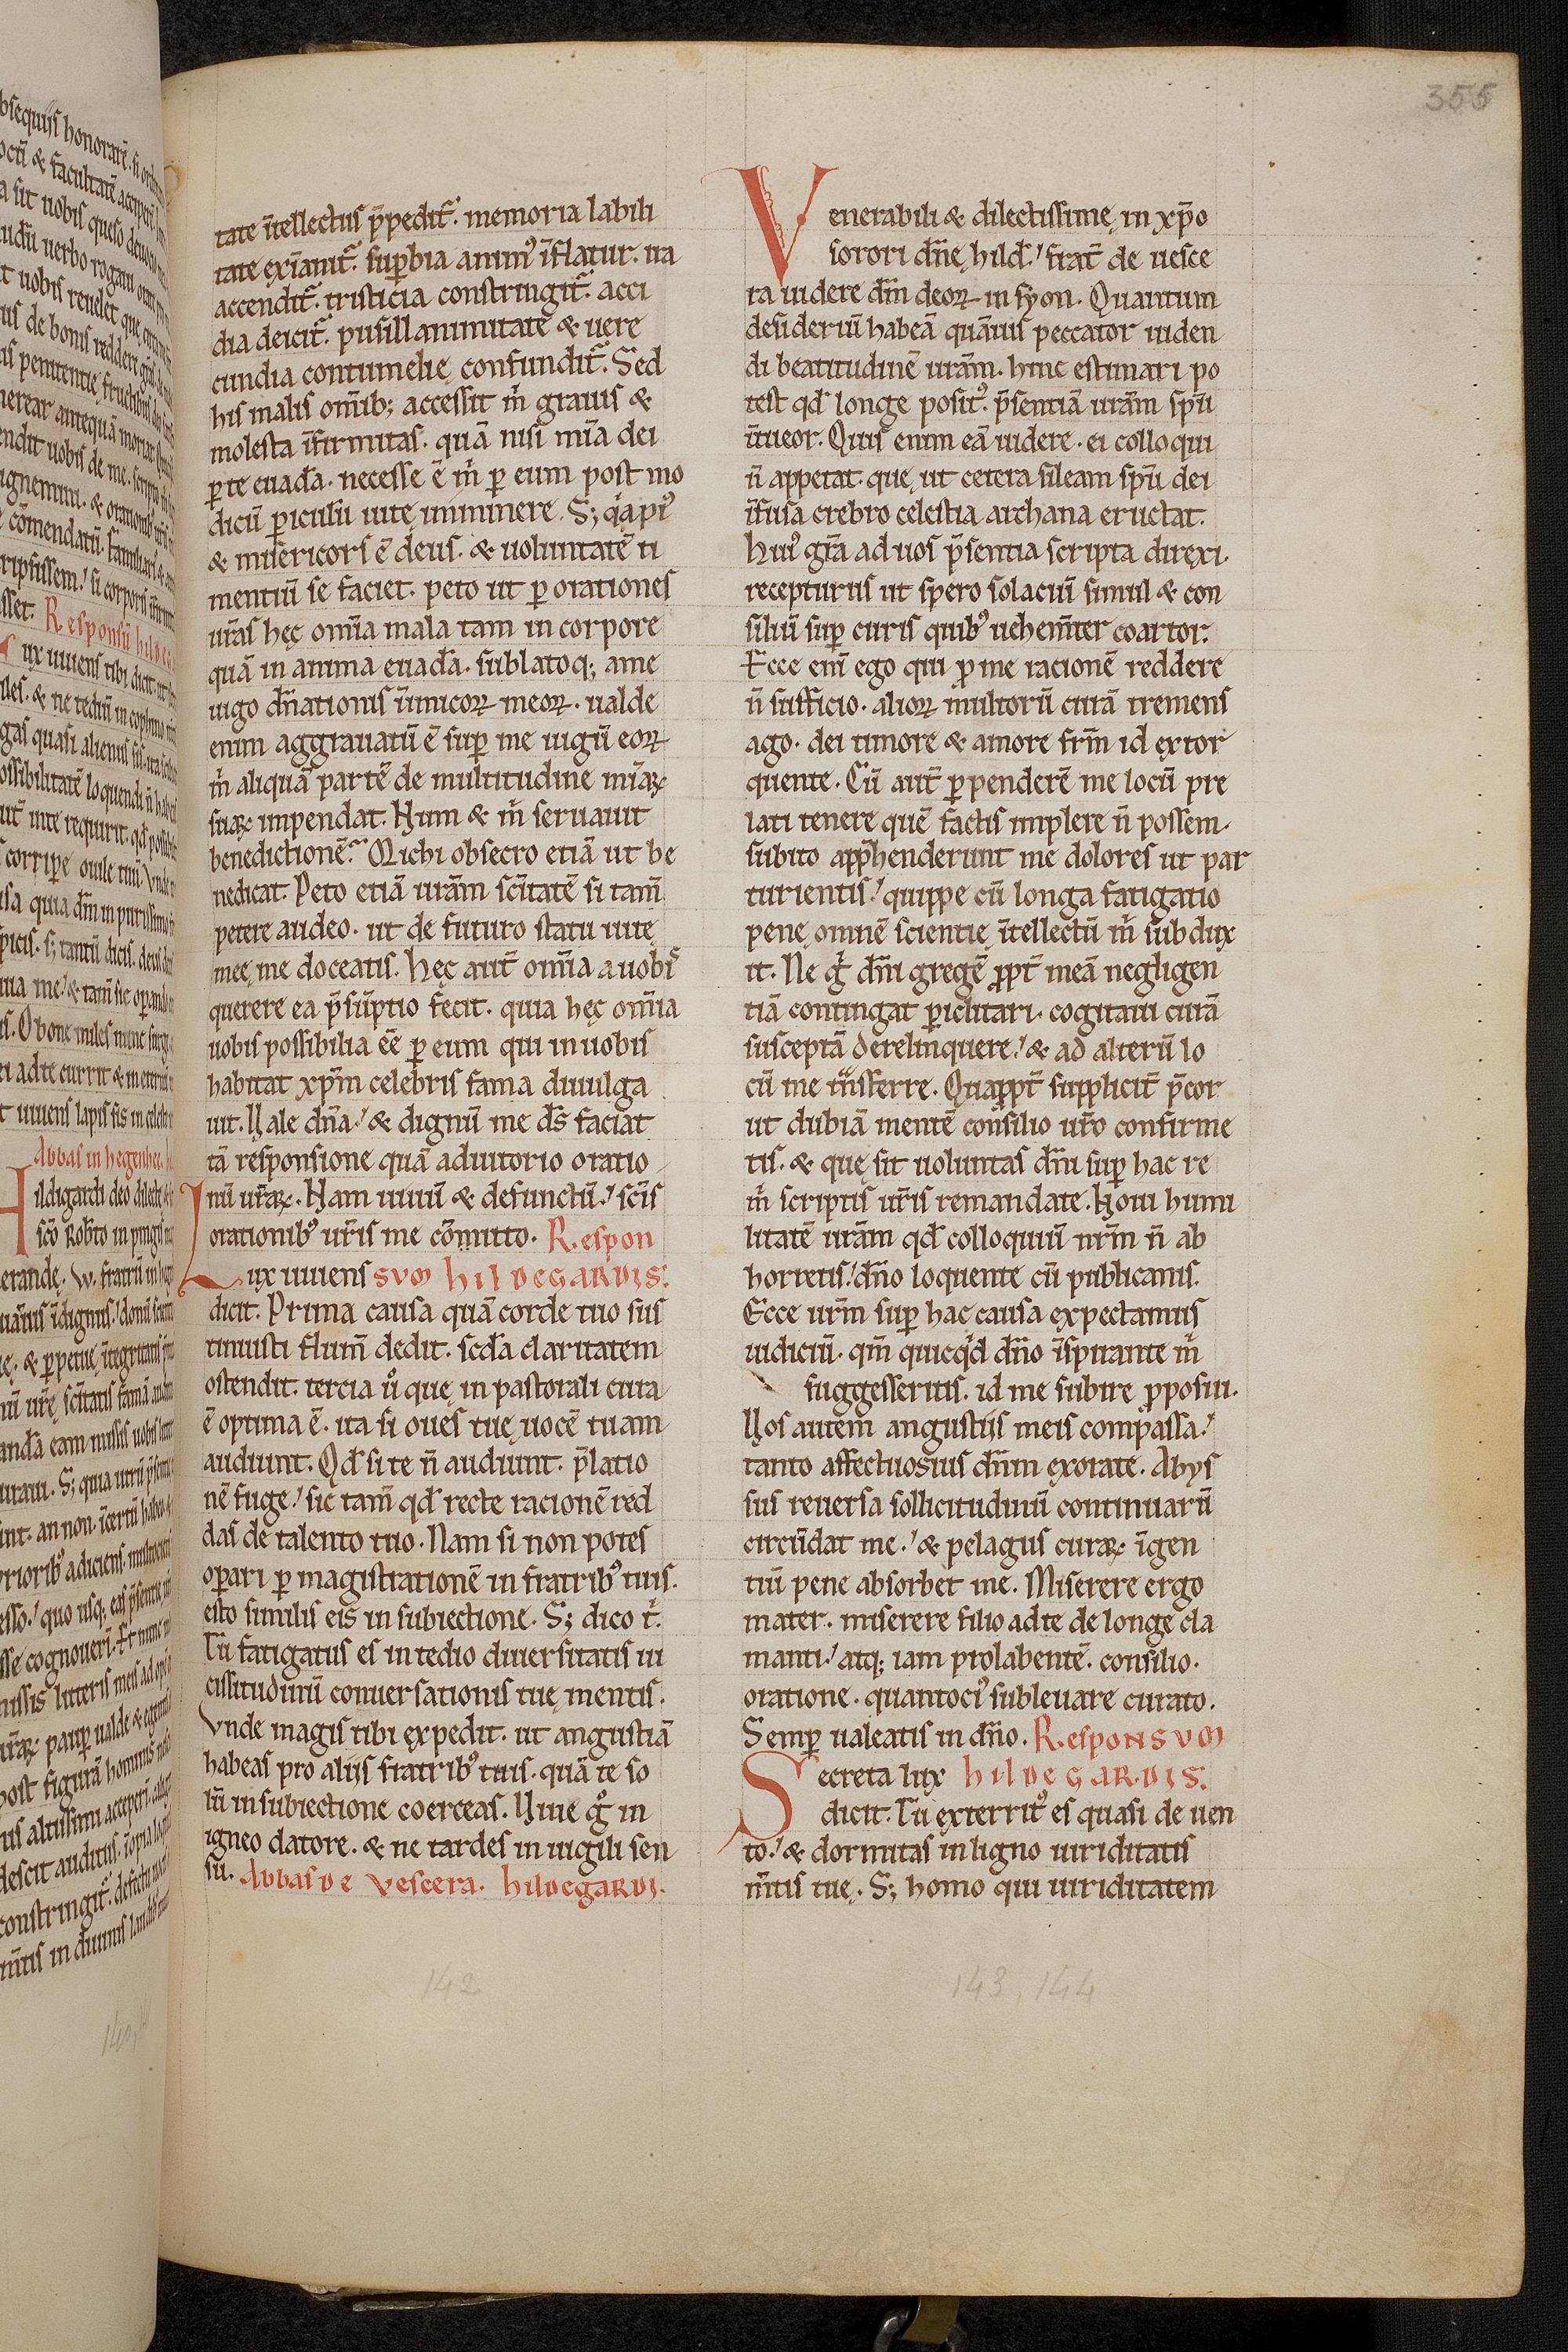 355
tate ītellectus p̄pedit᷑. memoria labili
tate exīanit᷑. suꝑbia anim᷒ īflatur. ira
accendit᷑. tristicia constringit᷑. acci
dia deicit᷑. pusillanimitate & uere
cundia contumelie confundit᷑. Sed
his malis om̄ib; accessit m̄ grauis &
molesta īfirmitas. quā nisi mīa dei
ꝑ te euadā. necesse ē m̄ ꝑ eum post mo
dicū ꝑiculū uitę imminere. S; q̓a pi᷒
& misericors ē deus. & uoluntatē ti
mentiū se faciet. peto ut ꝑ orationes
ur̄as hęc om̄ia mala tam in corpore
quā in anima euadā. sublatoq; a me
iugo dn̄ationis inimicoꝝ meoꝝ. ualde
enim aggrauatū ē suꝑ me iugū eoꝝ
m̄ aliquā partē de multitudine mīaꝝ
suaꝝ impendat. Num & m̄ seruauit
benedictionē? Michi obsecro etiā ut be
nedicat. Peto etiā ur̄am sc̄itatē si tam̄
petere audeo. ut de futuro statu uitę
meę me doceatis. Hęc aut̄ om̄ia a uobis
querere ea p̄sūptio fecit. quia hęc om̄ia
uobis possibilia eē̄ ꝑ eum qui in uobis
habitat xp̄m celebris fama diuulga
uit. Vale dn̄a! & dignū me ds̄ faciat
tā responsione quā adiutorio oratio
nū ur̄aꝝ. Nam uiuū & defunctū! sc̄is
orationib᷒ ur̄is me cōmitto. Respon
Lux uiuens SVM HILDEGARDIS.
dicit. Prima causa quā corde tuo sus
tinuisti flum̄ dedit. scd̄a claritatem
ostendit. tercia u̓ que in pastorali cura
ē optima ē. ita si oues tuę uocē tuam
audiunt. Qd̄ si te n̄ audiunt. p̄latio
nē fuge! sic tam̄ qd̄ recte racionē red
das de talento tuo. Nam si non potes
oꝑari ꝑ magistrationē in fratrib᷒ tuis.
esto similis eis in subiectione. S; dico t̓.
Tu fatigatus es in tedio diuersitatis ui
cissitudinū conuersationis tuę mentis.
Vnde magis tibi expedit. ut angustiā
habeas pro aliis fratrib᷒ tuis. quā te so
lū in subiectione coerceas. Viue g̓ in
igneo datore. & ne tardes in uigili sen
su. Abbas de Vescera. hildegardi.
Venerabili & dilectissimę in xp̄o
sorori dn̄ę hild̄.! frat̄ de uesce
ra uidere dm̄ deoꝝ in syon. Quantum
desideriū habeā quāuis peccator uiden
di beatitudinē ur̄am. hinc estimari po
test qd̄ longe posit᷒. p̄sentiā ur̄am sp̄u
ītueor. Quis enim eā uidere. ei colloqui
n̄ appetat. quę ut cetera sileam sp̄u dei
īfusa crebro celestia archana eructat.
Hui᷒ gr̄a ad uos p̄sentia scripta direxi.
recepturus ut spero solaciū simul & con
siliū suꝑ curis quib᷒ uehem̄ter coartor.
Ecce eni̅ ego qui ꝓ me racionē reddere
n̄ sufficio. alioꝝ multorū curā tremens
ago. dei timore & amore frm̄ id extor
quente. Cū aut̄ ꝑpenderē me locū pre
lati tenere quē factis implere n̄ possem.
subito app̄henderunt me dolores ut par
turientis! quippe cū longa fatigatio
pene omnē scientie ītellectū m̄ subdux
it. Ne g̓ dn̄i gregē ꝓpt̄ meā negligen
tiā contingat ꝑiclitari. cogitaui curā
susceptā derelinquere! & ad alterū lo
cū me tn̄sferre. Quaꝓpt̄ supplicit̄ p̄cor
ut dubiā mentē consilio ur̄o confirme
tis. & quę sit uoluntas dn̄i suꝑ hac re
m̄ scriptis ur̄is remandate. Noui humi
litatē ur̄am qd̄ colloquiū nr̄m n̄ ab
horretis! dn̄o loquente cū publicanis.
Ecce ur̄m suꝑ hac causa expectamus
iudiciū. qm̄ quicq̓d dn̄o īspirante m̄
suggesseritis. id me subire ꝓposui.
Vos autem angustiis meis compassa!
tanto affectuosius dn̄m exorate. Abys
sus reuersa sollicitudinū continuarū
circūdat me! & pelagus curaꝝ īgen
tiū pene absorbet me. Miserere ergo
mater. miserere filio ad te de longe cla
manti! atq; iam prolabentē. consilio.
oratione. quantoci᷒ subleuare curato.
Semꝑ ualeatis in dn̄o. RESPONSVM
Secreta lux HILDEGARDIS.
dicit. Tu exterrit᷒ es quasi de uen
to! & dormitas in ligno uiriditatis
m̄tis tuę. S; homo qui uiriditatem
142
143, 144